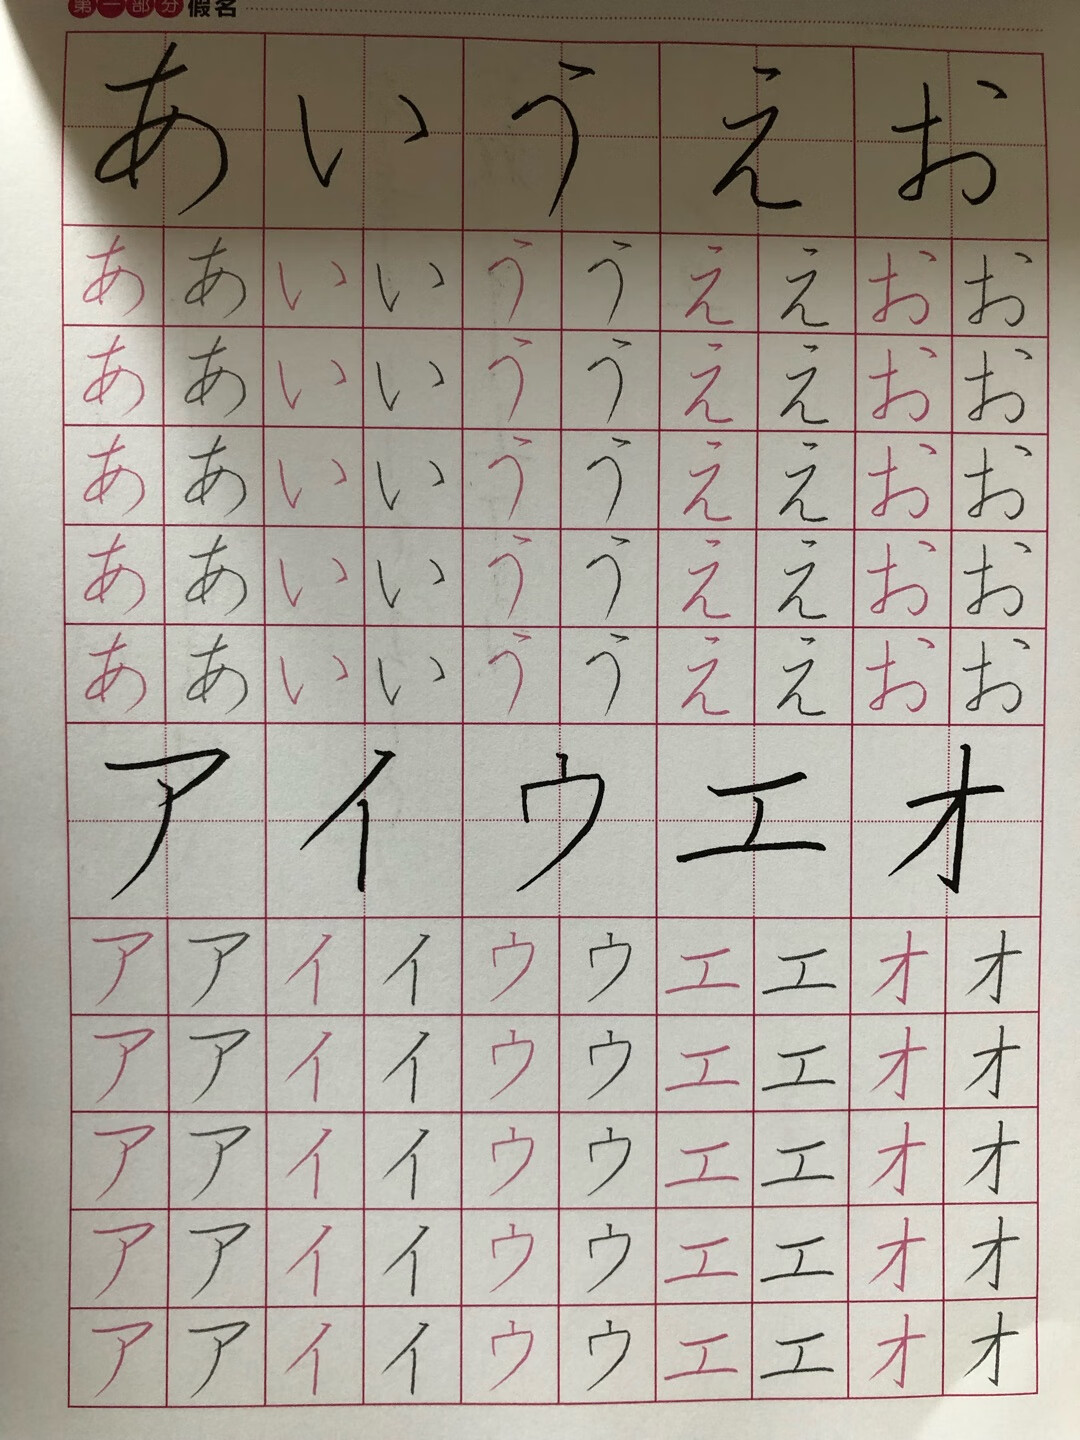 第一部分 假名
あ い う え お
ああいいううええおお
ああいいううええおお
ああいいううええおお
ああいいううええおお
ああいいううええおお
ア イ ウ エ オ
アアイイウウエエオオ
アアイイウウエエオオ
アアイイウウエエオオ
アアイイウウエエオオ
アアイイウウエエオオ